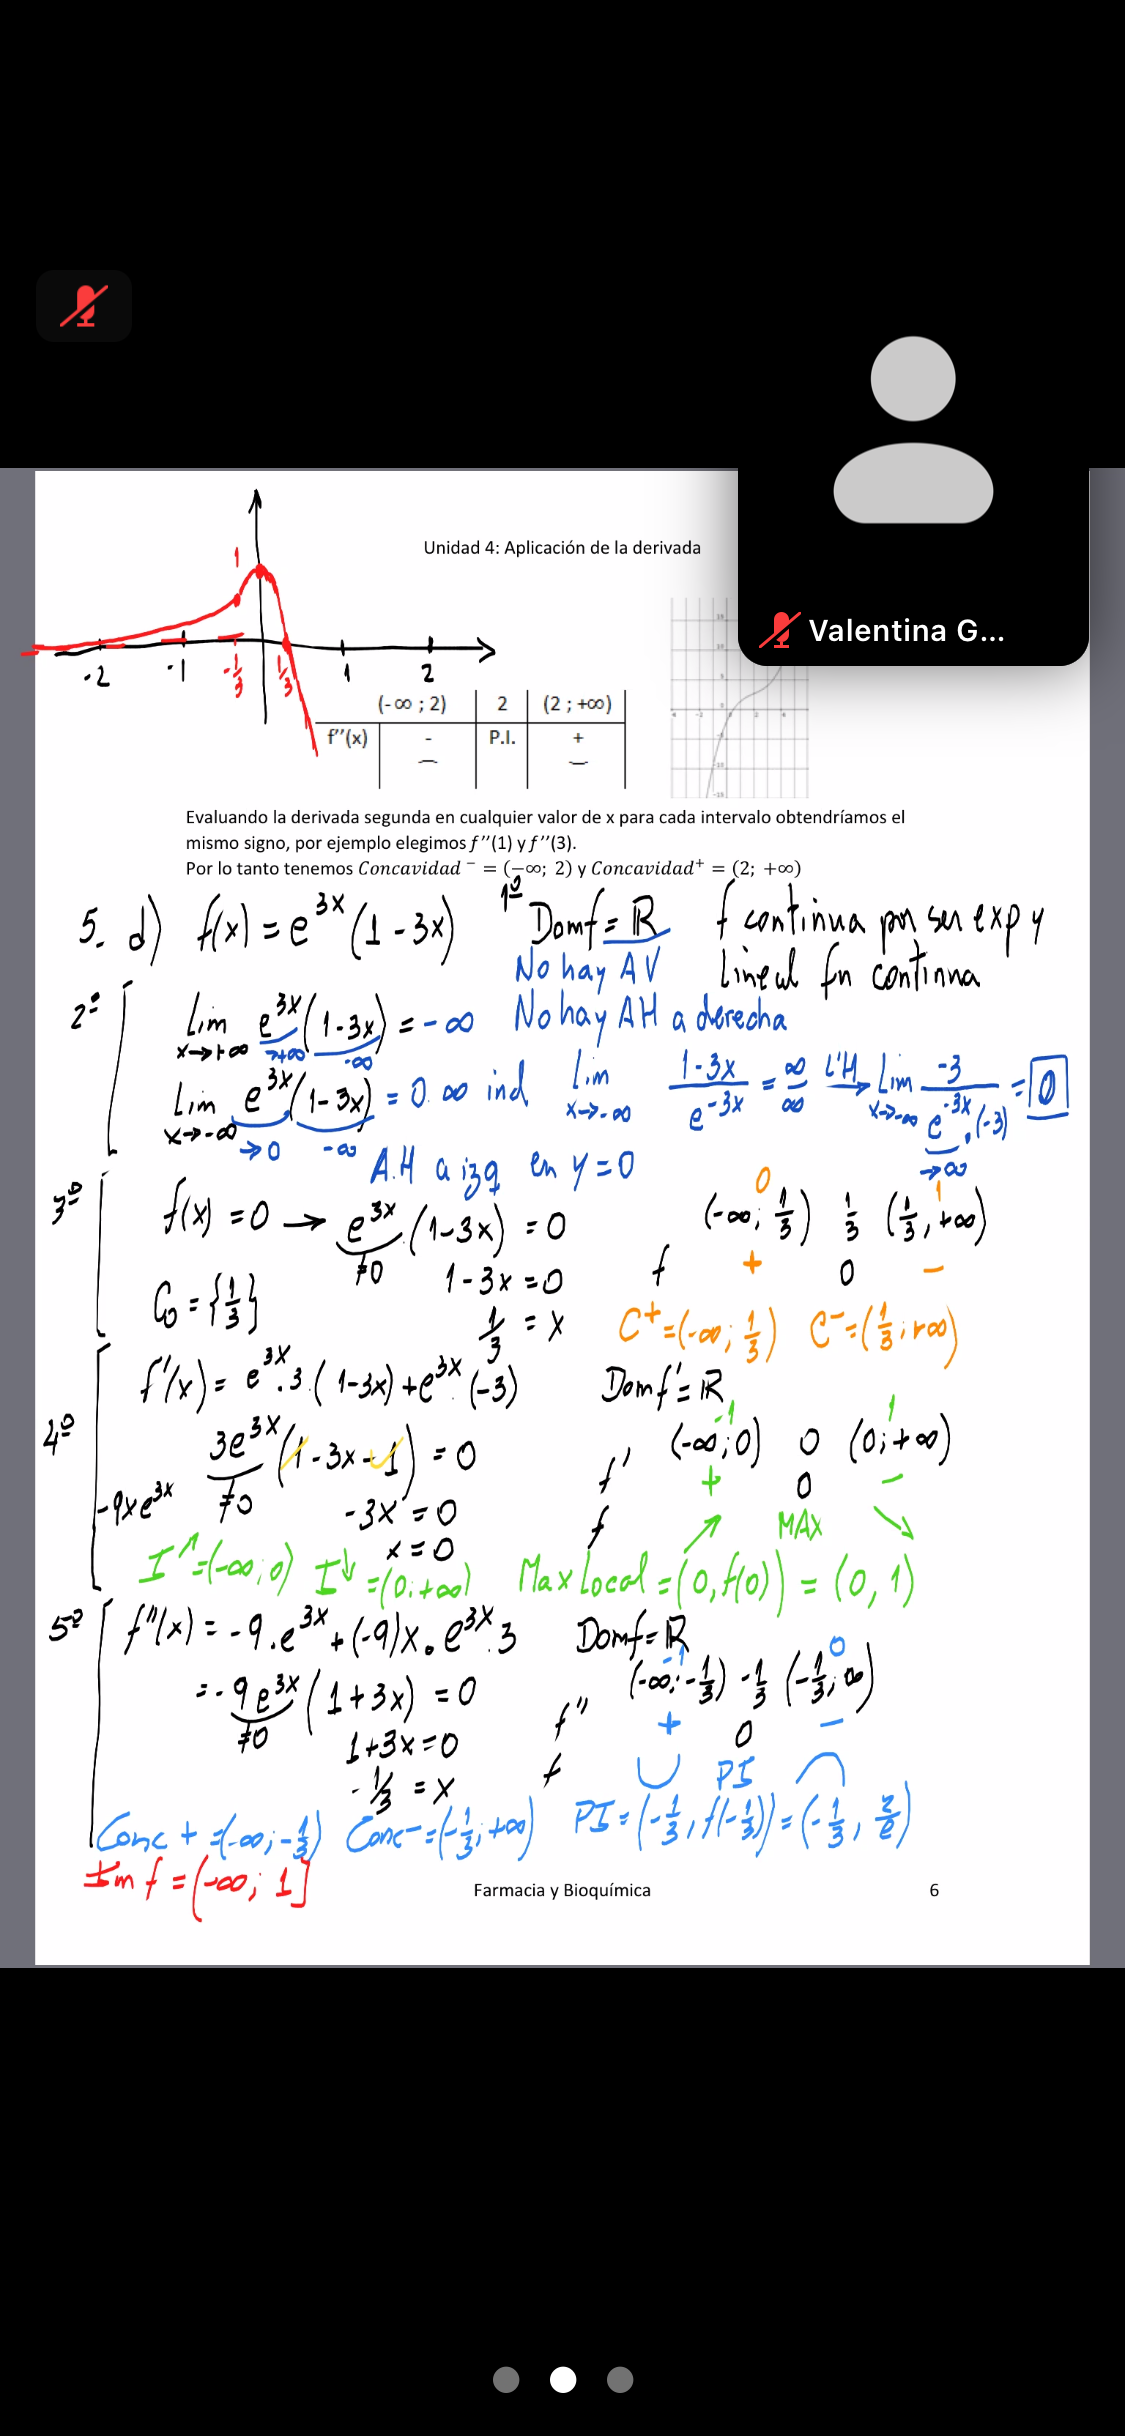 Valentina G...
Unidad 4: Aplicación de la derivada
1
-2 -1 -1/3 1/3 1 2
(-∞ ; 2) 2 (2 ; +∞)
f''(x) - P.I. +
Evaluando la derivada segunda en cualquier valor de x para cada intervalo obtendríamos el
mismo signo, por ejemplo elegimos f''(1) y f''(3).
Por lo tanto tenemos Concavidad ⁻ = (−∞; 2) y Concavidad⁺ = (2; +∞)
5. d) f(x) = e^3x (1 - 3x) 1º Domf = ℝ f continua por ser exp y
No hay AV Lineal fn continua
2º Lim x→+∞ e^3x (1-3x) = -∞ No hay AH a derecha
→+∞ -∞
Lim x→-∞ e^3x (1-3x) = 0.∞ ind Lim x→-∞ 1-3x / e^-3x = ∞/∞ L'H → Lim x→-∞ -3 / e^-3x.(-3) = 0
→0 -∞ A.H a izq en y=0 →∞
3º f(x) = 0 → e^3x.(1-3x) = 0 0 1
(-∞; 1/3) 1/3 (1/3, +∞)
≠0 1-3x = 0 f + 0 -
C0 = {1/3} 1/3 = x C+ = (-∞; 1/3) C- = (1/3; +∞)
f'(x) = e^3x.3.(1-3x) + e^3x.(-3) Domf' = ℝ
4º 3e^3x (1-3x-1) = 0 -1 1
(-∞;0) 0 (0;+∞)
-9xe^3x ≠0 -3x = 0 f' + 0 -
x = 0 f ↗ MAX ↘
I↑ = (-∞;0) I↓ = (0;+∞) Max Local = (0, f(0)) = (0, 1)
5º f''(x) = -9.e^3x + (-9)x.e^3x.3 Domf = ℝ
-1 0
= -9e^3x (1+3x) = 0 (-∞; -1/3) -1/3 (-1/3; ∞)
≠0 1+3x = 0 f'' + 0 -
-1/3 = x f ∪ PI ∩
Conc + = (-∞; -1/3) Conc- = (-1/3; +∞) PI = (-1/3, f(-1/3)) = (-1/3, 2/e)
Im f = (-∞; 1]
Farmacia y Bioquímica 6